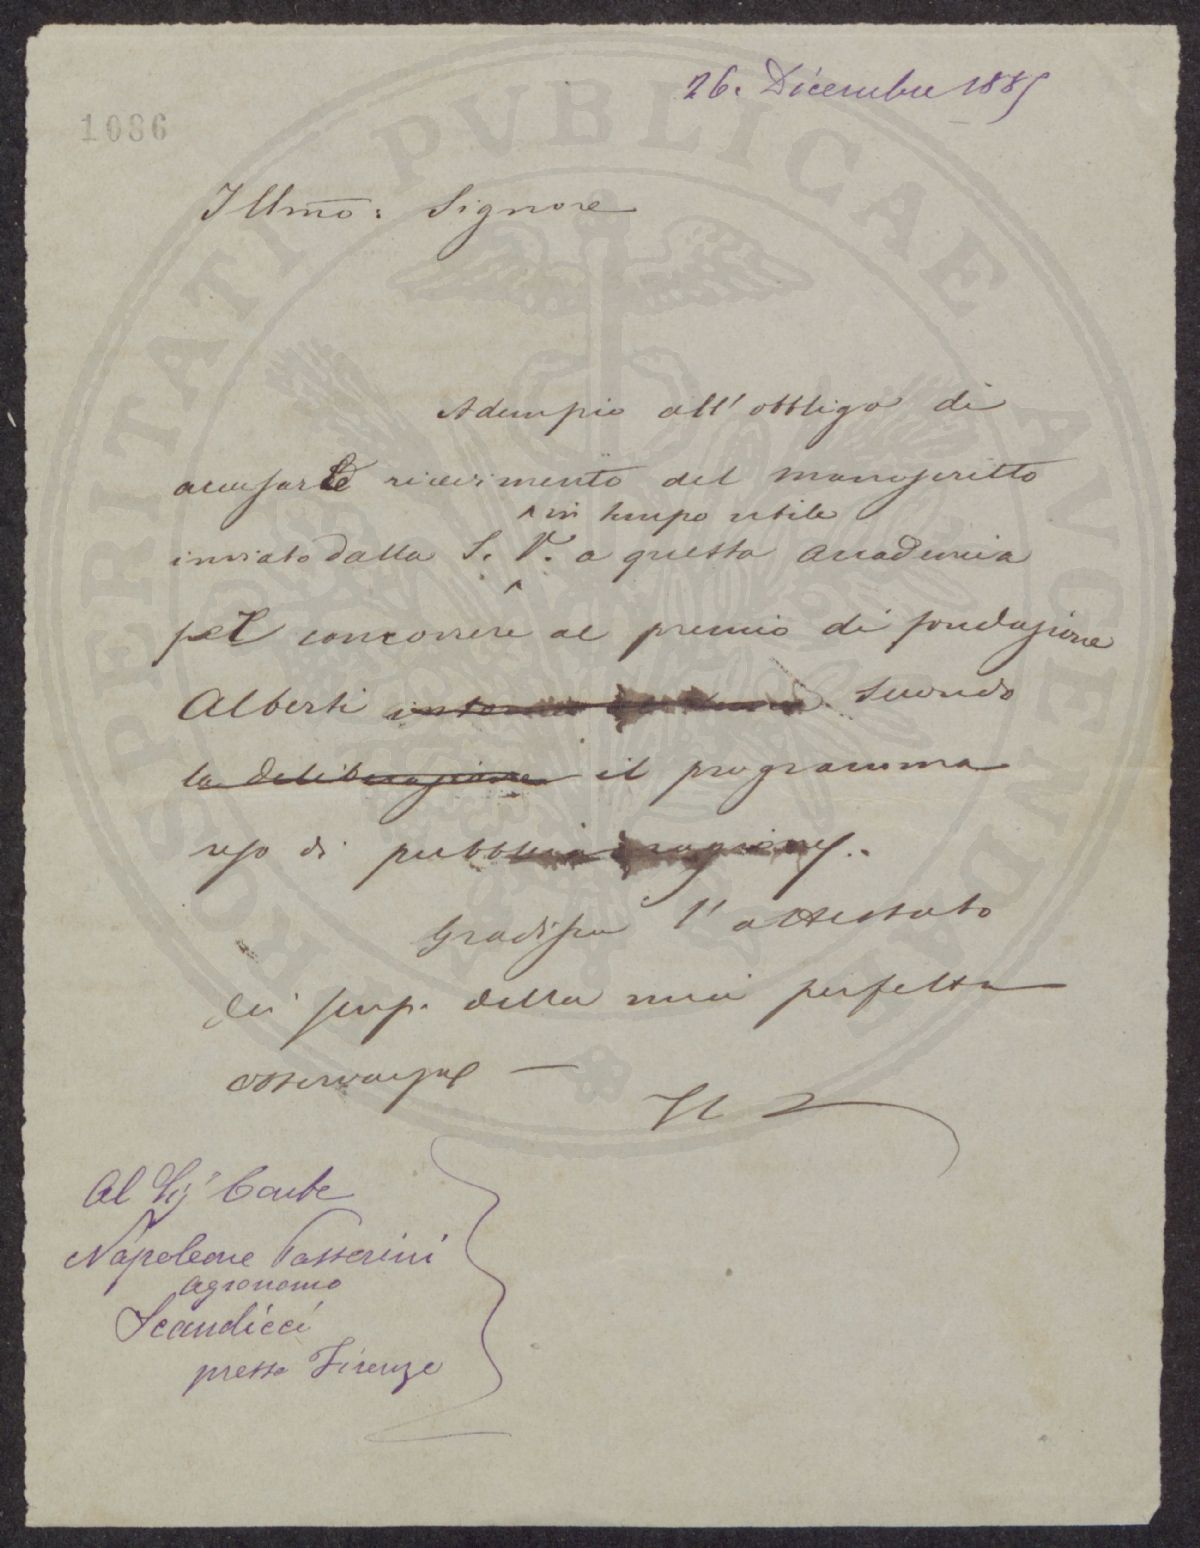 26. Dicembre 1885
1086
Illmo: Signore
Adempio all'obbligo di
accusarle ricevimento del manoscritto
in tempo utile
inviato dalla S. V. a questa Accademia
pel concorrere al premio di fondazione
Alberti secondo
la deliberazione il programma
reso di pubblica ragione.
Gradisca l'attestato
della mia perfetta
osservanza —
Il
Al Sig. Conte
Napoleone Passerini
agronomo
Scandicci
presso Firenze
PROSPERITATI PVBLICAE AVGENDAE